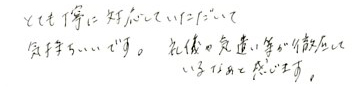 とても丁寧に対応していただいて
気持ちいいです。 礼儀や気遣い等が徹底して
いるなあと感じます。